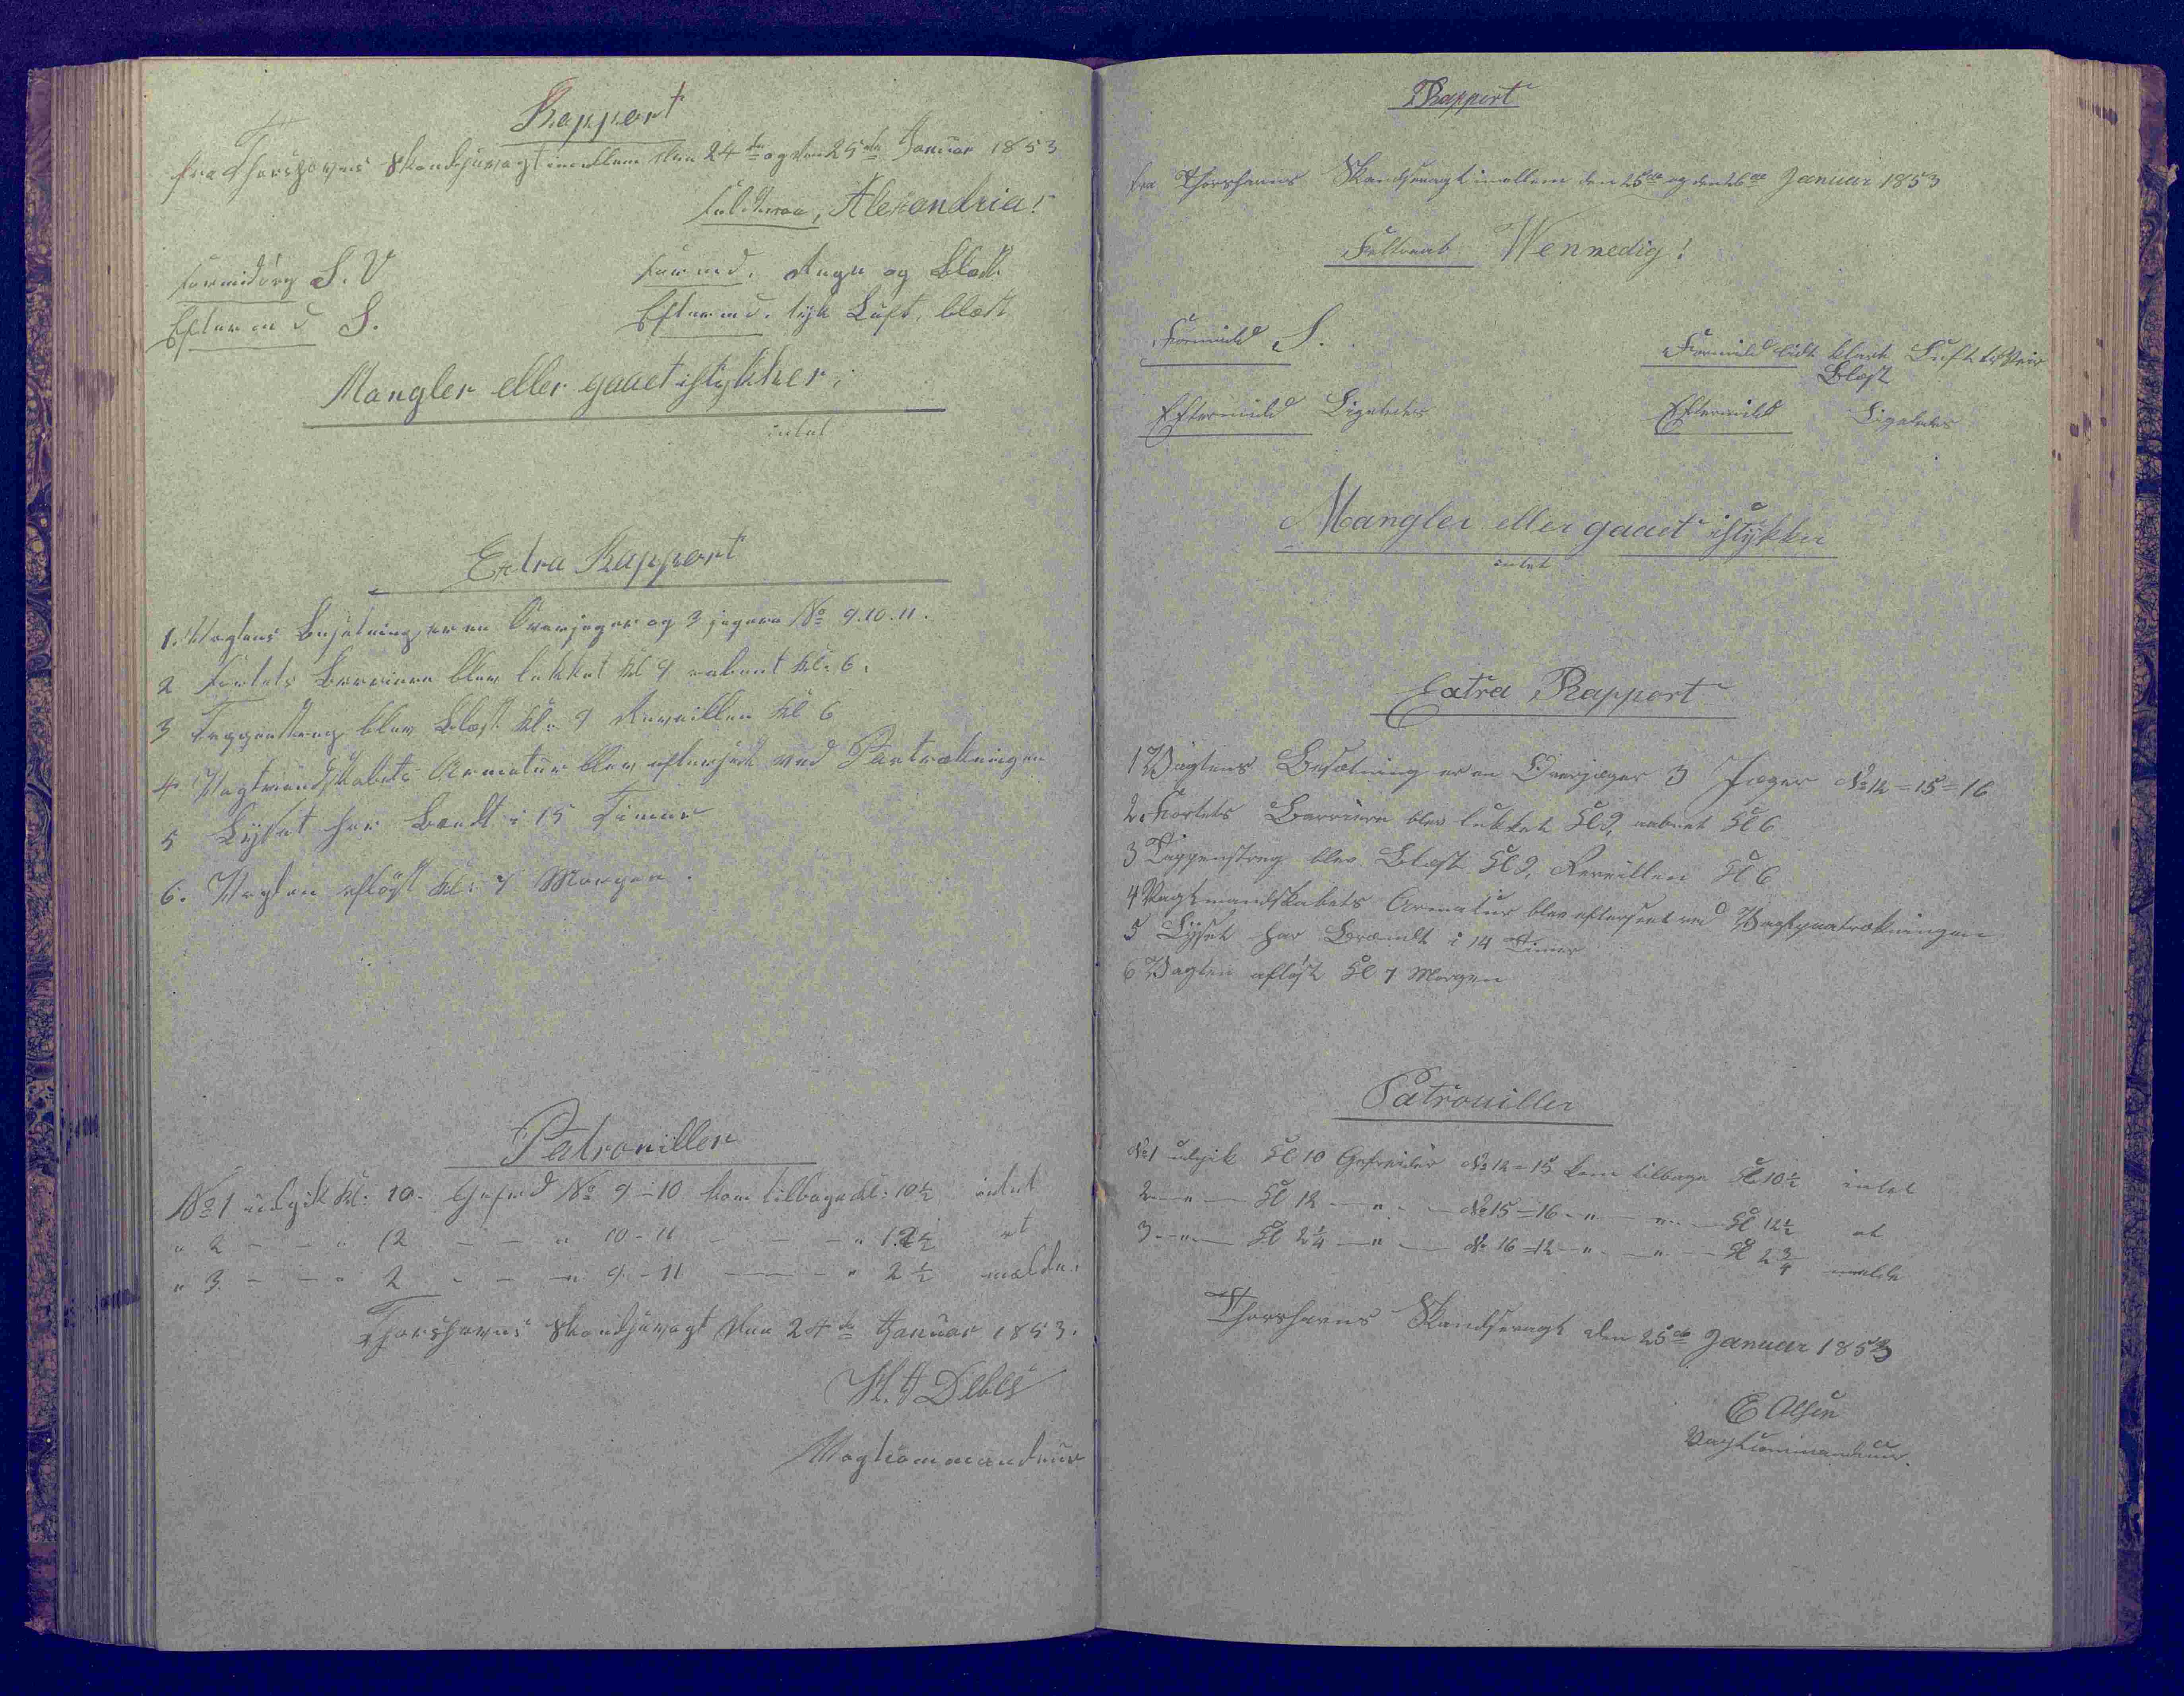 Rapport
fra Thorshavns Skandsevagt imellem den 24de og den 25de Januar 1853
Feltraab, Alexandria!
Formidag S. V
Formd. Regn og Blæst
Eftermd S.
Eftermd. tyk Luft, blæst
Mangler eller gaaet istykker;
intet
Extra Rapport
1. Vagtens Besætning er en Overjæger og 3 jægere No 9. 10. 11.
2 Fortets Barriere blev lukket kl 9 aabnet kl. 6.
3 Tappenstreg blev Blæst kl. 9 Reveillen kl 6
4 Vagtmandskabets Armatur blev efterseet ved Paatrækningen
5 Lyset har Brendt i 15 Timer
6. Vagten afløst kl. 7 Morgen.
Patrouiller
No 1 udgik kl. 10. Gefred No 9-10 kom tilbage kl. 10½ intet
" 2 - - " 12 - - " 10-11 - - - " 12½ at
" 3 - - " 2 - - " 9-11 - - - " 2½ melde.
Thorshavns Skandsevagt den 24de Januar 1853.
Debes
Vagtcommandeur
Rapport
fra Thorshavns Skandsevagt imellem den 25de og den 26de Januar 1853
Feltraab Wennedig!
Formidd S.
Formidd lidt klart Luft
Blæst
Eftermidd Ligeledes
Eftermidd Ligeledes
Mangler eller gaaet istykker
intet
Extra Rapport
1 Vagtens Besætning er en Overjæger 3 Jæger No 12=15=16
2 Fortets Barriere blev lukket Kl 9, aabnet Kl 6
3 Tappenstreg blev Blæst Kl 9, Reveillen Kl 6
4 Vagtmandskabets Armatur blev efterseet ved Vagtpaatrækningen
5 Lyset har Brændt i 14 Timer
6 Vagten afløst Kl 7 Morgen
Patrouiller
No 1 udgik Kl 10 Gefreider No 12=15 kom tilbage Kl 10½ intet
2 - " - Kl 12 - " - No 15=16 - " - " - Kl 12½ at
3 - " - Kl 2¼ - " - No 16=12 - " - " - Kl 2¾ melde
Thorshavns Skandsevagt den 25de Januar 1853
E Olsen
Vagtcommandeur.